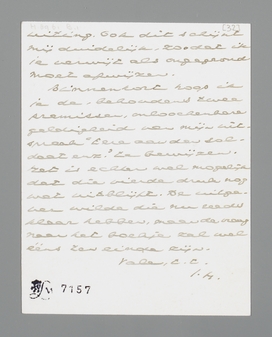 [32]
uiting. Ook dit schijnt
mij duidelijk, zoodat ik
je verwijt als ongegrond
moet afwijzen.
Binnenkort hoop ik
je de, behoudens twee
premissen, onloochenbare
geldigheid van mijn uit-
spraak "Eere aan den sol-
daat enz." te bewijzen.
Het is echter wel mogelijk
dat die vierde druk nog
wat uitblijft. De uitge-
ver wilde die nu reeds
klaar hebben, maar de vraag
naar het boekje zal wel
eens ten einde zijn.
Vale, t.t.
7157